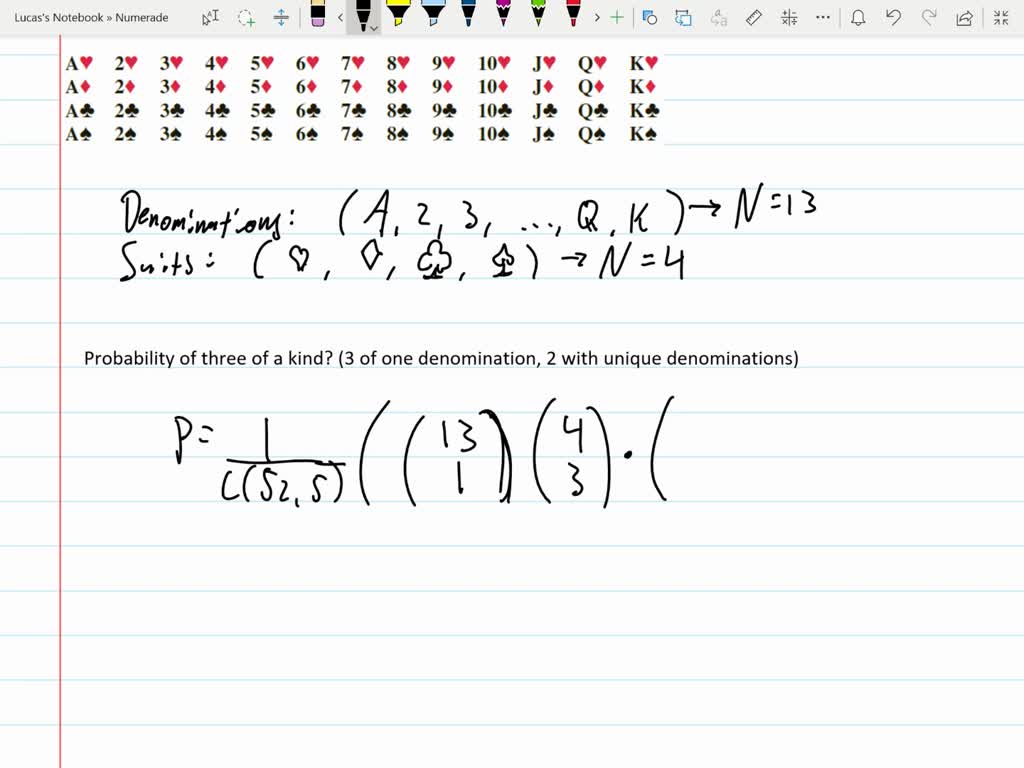 Lucas's Notebook » Numerade
A♥ 2♥ 3♥ 4♥ 5♥ 6♥ 7♥ 8♥ 9♥ 10♥ J♥ Q♥ K♥
A♦ 2♦ 3♦ 4♦ 5♦ 6♦ 7♦ 8♦ 9♦ 10♦ J♦ Q♦ K♦
A♣ 2♣ 3♣ 4♣ 5♣ 6♣ 7♣ 8♣ 9♣ 10♣ J♣ Q♣ K♣
A♠ 2♠ 3♠ 4♠ 5♠ 6♠ 7♠ 8♠ 9♠ 10♠ J♠ Q♠ K♠
Denominations: (A, 2, 3, ..., Q, K) → N=13
Suits: (♡, ♢, ♧, ♤) → N=4
Probability of three of a kind? (3 of one denomination, 2 with unique denominations)
P= 1/C(52,5) ( (13 1) (4 3) · (